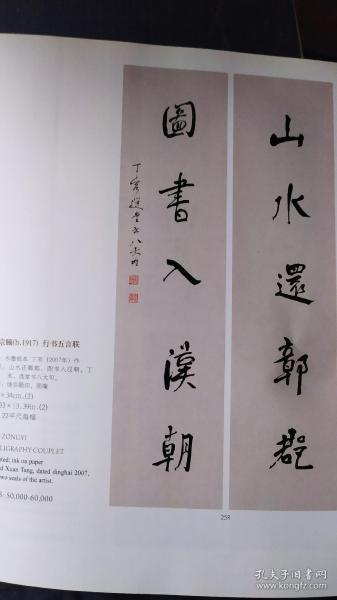 山水還鄣郡
圖書入漢朝
丁亥選堂書八大句
宗頤(b.1917) 行书五言联
水墨纸本 丁亥(2007年)作
山水还鄣郡，图书入汉朝。丁
亥，选堂书八大句。
× 34cm. (2)
33 × 13.39in. (2)
.22平尺每幅
ZONGYI
LIGRAPHY COUPLET
ted: ink on paper
d Xuan Tang, dated dinghai 2007,
wo seals of the artist.
50,000-60,000
258
孔夫子旧书网